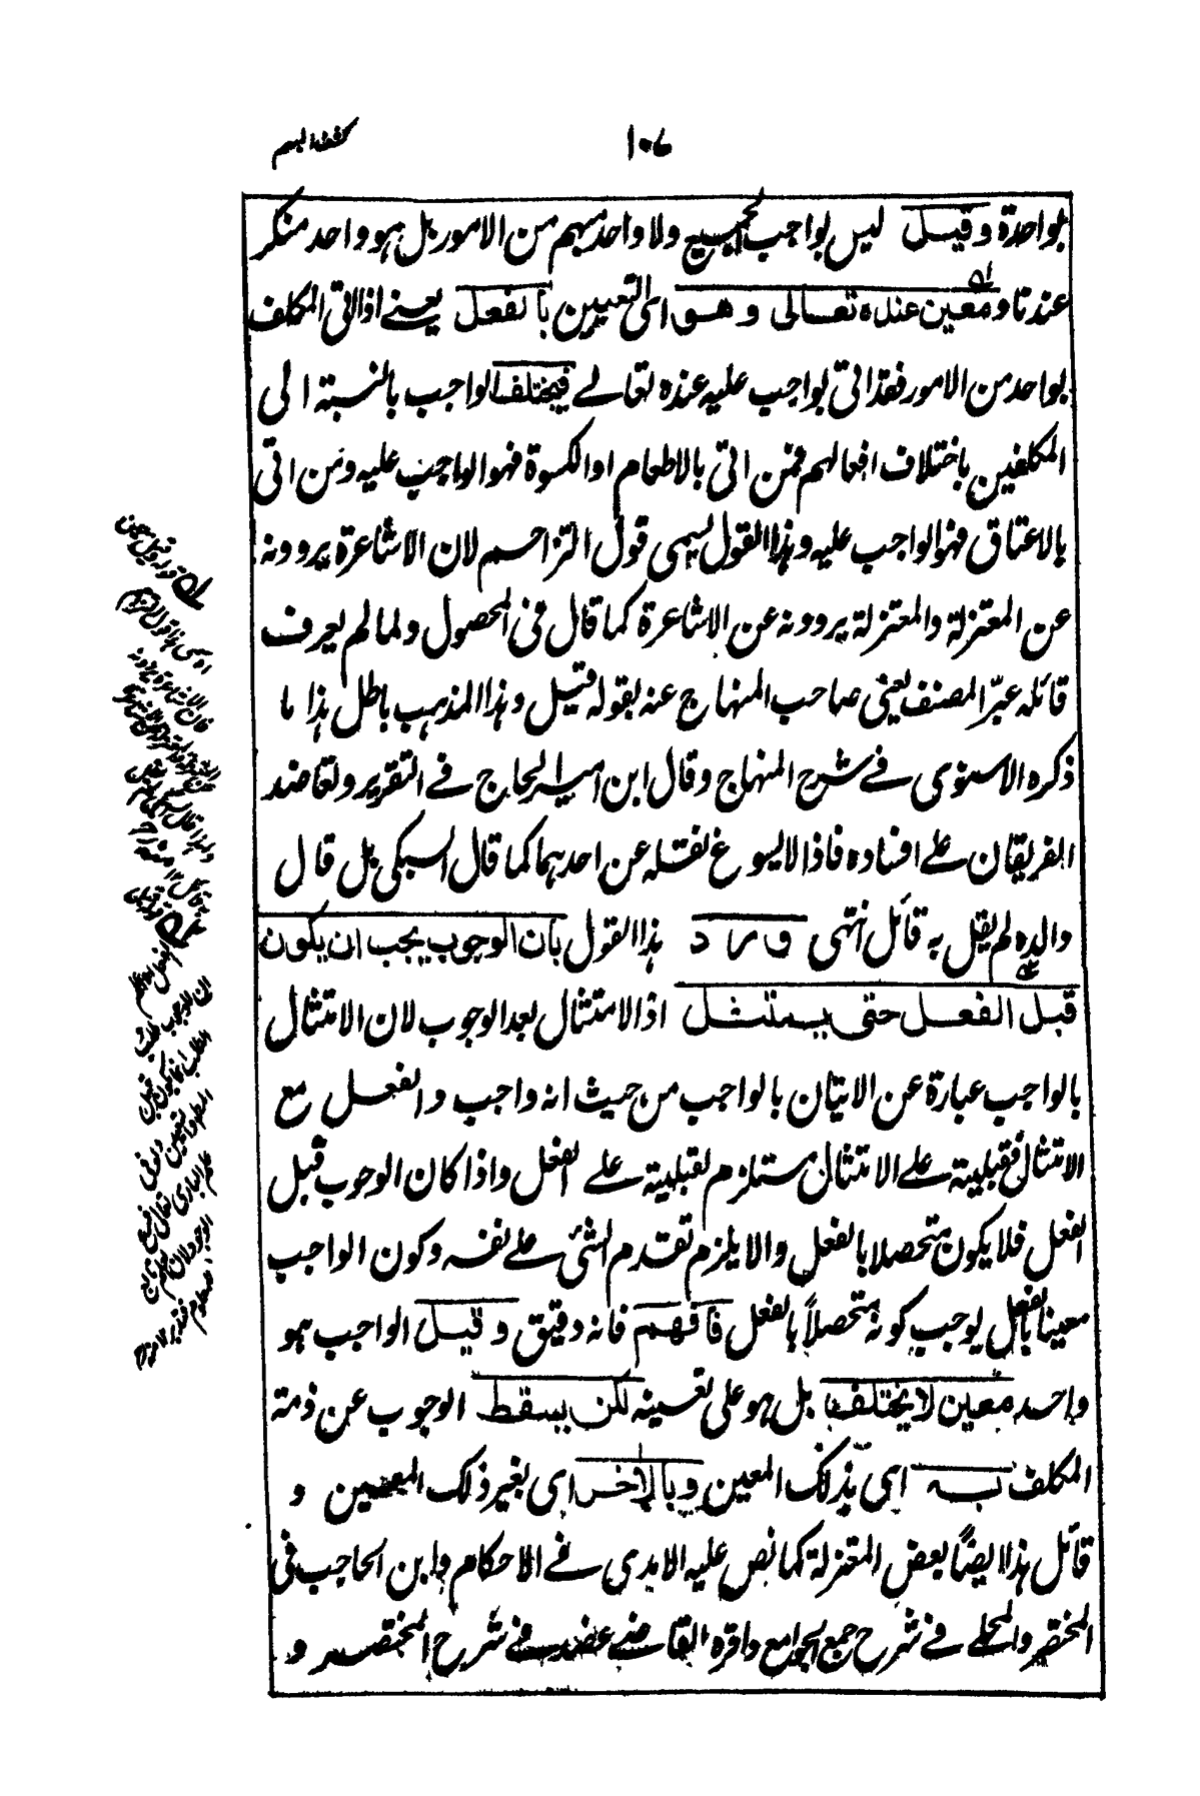 كشف المبهم
١٠٦
بواحدة وقيل ليس بواجب الجميع ولا واحد مبهم من الامور بل هو واحد منكر
عندنا ومعين عنده تعالى وهو اى التعيين بالفعل يعنى اذا اتى المكلف
بواحد من الامور فقد اتى بواجب عليه عنده تعالى فيختلف الواجب بالنسبة الى
المكلفين باختلاف افعالهم فمن اتى بالاطعام او الكسوة فهو الواجب عليه ومن اتى
بالاعتاق فهو الواجب عليه وهذا القول يسمى قول التراجم لان الاشاعرة يروونه
عن المعتزلة والمعتزلة يروونه عن الاشاعرة كما قال فى المحصول ولما لم يعرف
قائله عبّر المصنف يعنى صاحب المنهاج عنه بقوله قيل وهذا المذهب باطل هذا ما
ذكره الاسنوى فى شرح المنهاج وقال ابن امير الحاج فى التقرير ولتعاضد
الفريقان على افساده فاذا لا يسوغ نقله عن احدهما كما قال السبكى بل قال
والده لم يقل به قائل انتهى ورد هذا القول بان الوجوب يجب ان يكون
قبل الفعل حتى يمتثل اذ الامتثال بعد الوجوب لان الامتثال
بالواجب عبارة عن الاتيان بالواجب من حيث انه واجب والفعل مع
الامتثال فقبلية على الامتثال مستلزم لقبلية على الفعل واذا كان الوجوب قبل
الفعل فلا يكون متحصلا بالفعل والا يلزم تقدم الشئ على نفسه وكون الواجب
معينا بالفعل يوجب كونه متحصلاً بالفعل فافهم فانه دقيق وقيل الواجب هو
واحد معين لا يختلف بل هو على تعيينه لكن يسقط الوجوب عن ذمة
المكلف به اى بذلك المعين وبالاخر اى بغير ذلك المعين و
قائل هذا ايضاً بعض المعتزلة كما نص عليه الامدى فى الاحكام وابن الحاجب فى
المختصر والمحلى فى شرح جمع الجوامع واقره القاضى عضد فى شرح المختصر و